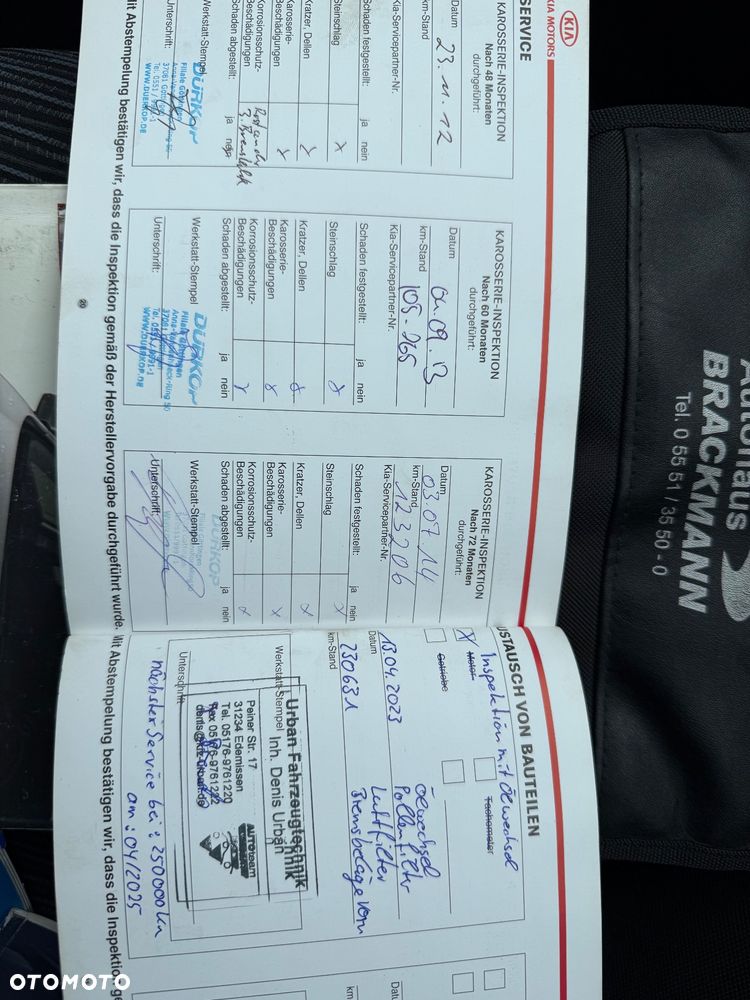 KIA
KIA MOTORS
SERVICE
KAROSSERIE-INSPEKTION
Nach 48 Monaten
durchgeführt:
Datum
23.11.12
km-Stand
Kia-Servicepartner-Nr.
Schaden festgestellt: ja nein
Steinschlag x
Kratzer, Dellen x
Karosserie-
Beschädigungen x
Korrosionsschutz-
Beschädigungen
Schaden abgestellt: ja nein
Werkstatt-Stempel
DÜRKOP
WWW.DUERKOP.DE
Unterschrift:
KAROSSERIE-INSPEKTION
Nach 60 Monaten
durchgeführt:
Datum
04.09.13
km-Stand
105.965
Kia-Servicepartner-Nr.
Schaden festgestellt: ja nein
Steinschlag x
Kratzer, Dellen x
Karosserie-
Beschädigungen x
Korrosionsschutz-
Beschädigungen x
Schaden abgestellt: ja nein
Werkstatt-Stempel
DÜRKOP
WWW.DUERKOP.DE
Unterschrift:
KAROSSERIE-INSPEKTION
Nach 72 Monaten
durchgeführt:
Datum
03.07.14
km-Stand
123206
Kia-Servicepartner-Nr.
Schaden festgestellt: ja nein
Steinschlag x
Kratzer, Dellen x
Karosserie-
Beschädigungen x
Korrosionsschutz-
Beschädigungen x
Schaden abgestellt: ja nein
Werkstatt-Stempel
DÜRKOP
Unterschrift:
Mit Abstempelung bestätigen wir, dass die Inspektion gemäß der Herstellervorgabe durchgeführt wurde.
USTAUSCH VON BAUTEILEN
Inspektion mit Ölwechsel
X Motor Tachometer
Getriebe
Ölwechsel
Pollenfilter
Luftfilter
Bremsbeläge vorn
Datum
13.04.2023
km-Stand
230631
Werkstatt-Stempel
Urban Fahrzeugtechnik
Inh. Denis Urban
Peiner Str. 17
31234 Edemissen
Tel. 05176-9761220
Fax 05176-9761222
AUTOteam
Unterschrift
nächster Service bei: 250000 km
am: 04/2025
Mit Abstempelung bestätigen wir, dass die Inspektion ge
Datum
km-Stand
Autohaus
BRACKMANN
Tel. 0 55 51 / 35 50 - 0
OTOMOTO